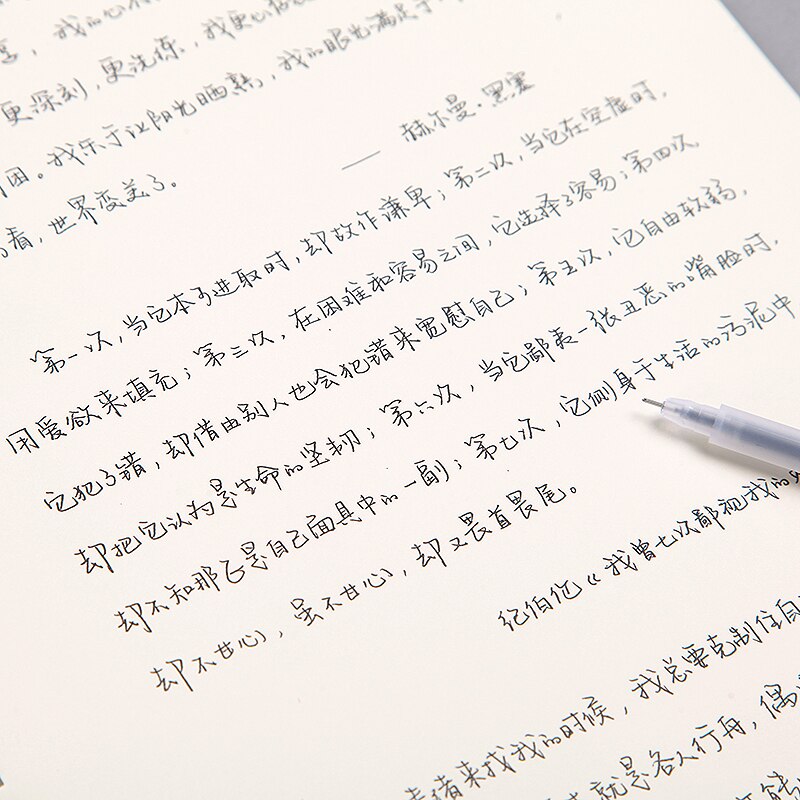 享，我的心
更深刻，更洗练，我更心
困。我乐于让阳光晒熟，我的眼光满足于
看，世界变美了。
—— 赫尔曼·黑塞
第一次，当它本可进取时，却故作谦卑；第二次，当它在空虚时，
用爱欲来填充；第三次，在困难和容易之间，它选择了容易；第四次，
它犯了错，却借由别人也会犯错来宽慰自己；第五次，它自由软弱，
却把它认为是生命的坚韧；第六次，当它鄙夷一张丑恶的嘴脸时，
却不知那正是自己面具中的一副；第七次，它侧身于生活的污泥中
却不甘心，虽不甘心，却又畏首畏尾。
纪伯伦《我曾七次鄙视我的
绪来找我的时候，我总要克制住自
就是各人行舟，偶